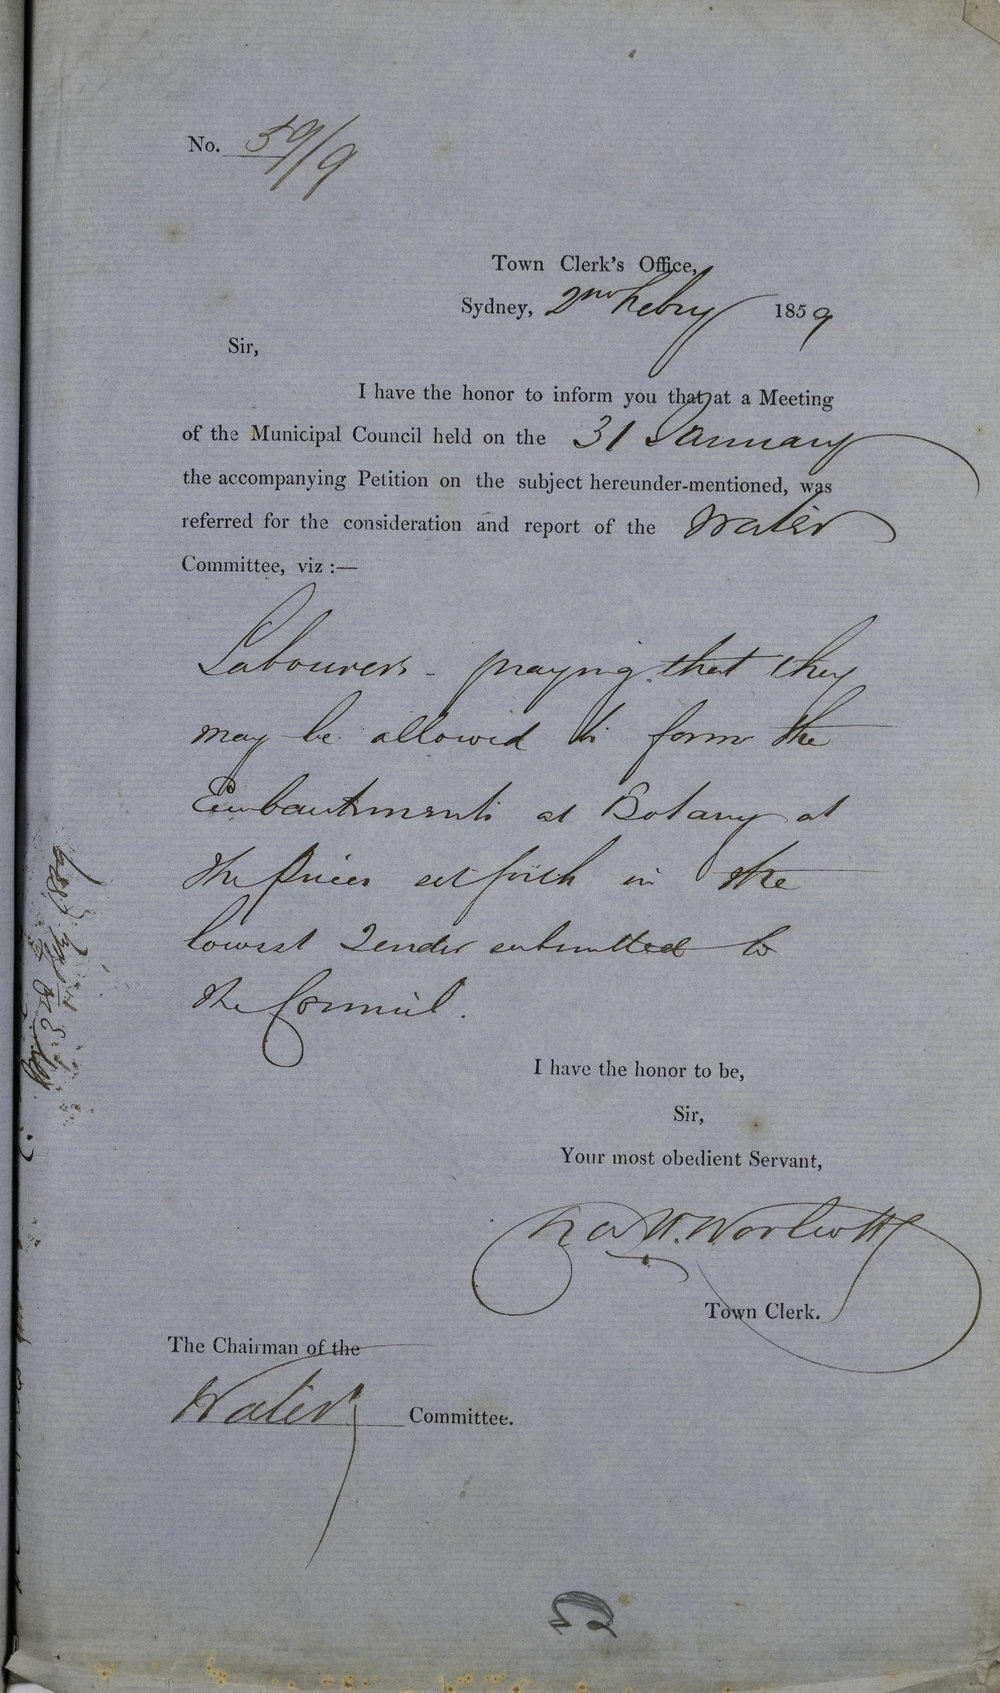 No. 59/9
Town Clerk's Office,
Sydney, 2nd Febry 1859
Sir,
I have the honor to inform you that at a Meeting
of the Municipal Council held on the 31 January
the accompanying Petition on the subject hereunder-mentioned, was
referred for the consideration and report of the Water
Committee, viz :—
Labourers - praying that they
may be allowed to form the
Embankments at Botany at
the prices set forth in the
lowest Tender submitted to
the Council.
I have the honor to be,
Sir,
Your most obedient Servant,
Town Clerk.
The Chairman of the
Water Committee.